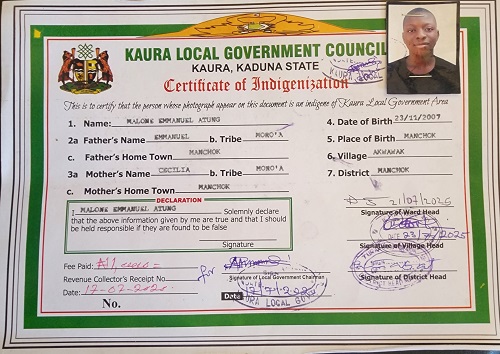 KAURA LOCAL GOVERNMENT COUNCIL
KAURA, KADUNA STATE
Certificate of Indigenization
This is to certify that the person whose photograph appear on this document is an indigene of Kaura Local Government Area
1. Name: MALONE EMMANUEL ATUNG
2a Father's Name EMMANUEL b. Tribe MORO'A
c. Father's Home Town MANCHOK
3a Mother's Name CECILIA b. Tribe MORO'A
c. Mother's Home Town MANCHOK
DECLARATION
I MALONE EMMANUEL ATUNG Solemnly declare
that the above information given by me are true and that I should
be held responsible if they are found to be false
Signature
Fee Paid:
Revenue Collector's Receipt No
Date: 17-07-2025
No.
4. Date of Birth 23/11/2007
5. Place of Birth MANCHOK
6. Village AKWAWAK
7. District MANCHOK
21/07/2025
Signature of Ward Head
23/7/2025
Signature of Village Head
Signature of District Head
for
Signature of Local Government Chairman
Date
KAURA LOCAL GOVT
KAURA LOCAL